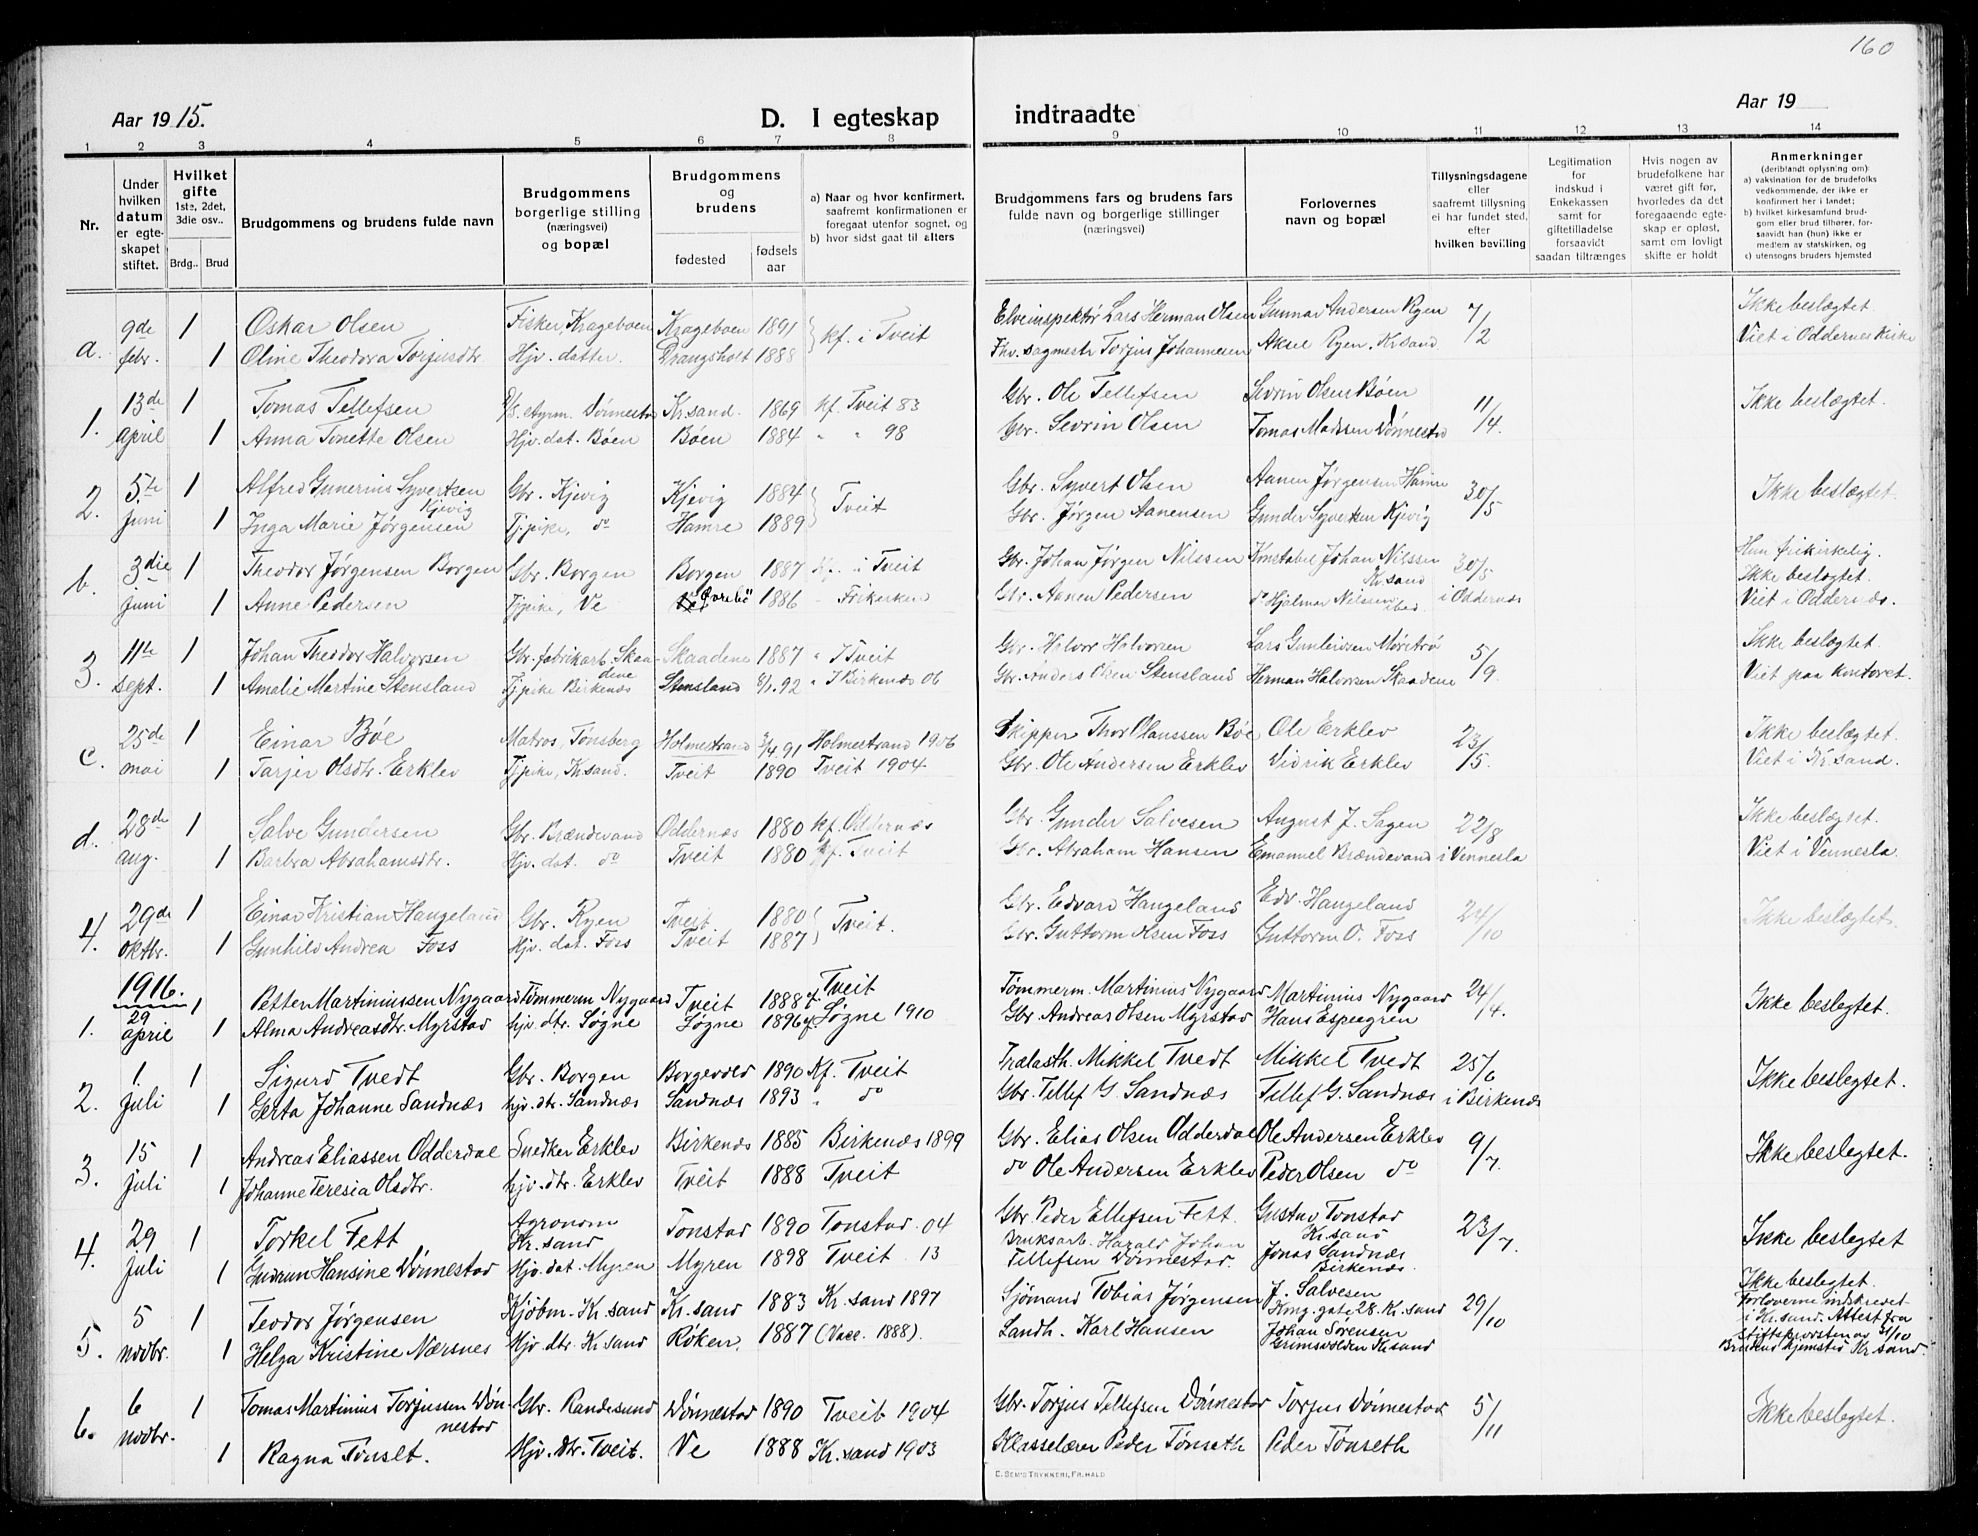 160
Aar 1915.
D. I egteskap indtraadte
Aar 19
1 2 3 4 5 6 7 8 9 10 11 12 13 14
Nr.
Under hvilken datum er egteskapet stiftet.
Hvilket gifte 1ste, 2det, 3die osv..
Brdg.. Brud
Brudgommens og brudens fulde navn
Brudgommens borgerlige stilling (næringsvei) og bopæl
Brudgommens og brudens
fødested
fødsels aar
a) Naar og hvor konfirmert, saafremt konfirmationen er foregaat utenfor sognet, og
b) hvor sidst gaat til alters
Brudgommens fars og brudens fars fulde navn og borgerlige stillinger (næringsvei)
Forlovernes navn og bopæl
Tillysningsdagene eller saafremt tillysning ei har fundet sted, efter hvilken bevilling
Legitimation for indskud i Enkekassen samt for giftetilladelse forsaavidt saadan tiltrænges
Hvis nogen av brudefolkene har været gift før, hvorledes da det foregaaende egteskap er opløst, samt om lovligt skifte er holdt
Anmerkninger (deriblandt oplysning om):
a) vaksination for de brudefolks vedkommende, der ikke er konfirmert her i landet;
b) hvilket kirkesamfund brudgom eller brud tilhører, forsaavidt han (hun) ikke er medlem av statskirken, og
c) utensogns bruders hjemsted
a. 9de febr. 1 Oskar Olsen Fisker, Krageboen Krageboen 1891 kf. i Tveit Elveinspektør Lars Herman Olsen Gunnar Andersen Ryen 7/2 Ikke beslægtet
1 Oline Theodora Torjusdtr. Hjv. datter. Drangsholt 1888 Fhv. sagmestr Torjus Johannesen Aksel Ryen, Kr.sand Viet i Oddernes Kirke
1. 13de april 1 Tomas Tellefsen Dønnestad Kr.sand. 1869 kf. Tveit 83 Gbr. Ole Tellefsen Sevrin Olsen Bøen 11/4. Ikke beslægtet.
1 Anna Tonette Olsen Hjv. dat. Bøen Bøen 1884 " " 98 Gbr. Sevrin Olsen Tomas Madssen Dønnestad
2. 5te juni 1 Alfred Gunerius Syvertsen Kjevig Gbr. Kjevig Kjevig 1884 Tveit Gbr. Syvert Olsen Aanen Jørgensen Hamre 30/5 Ikke beslægtet.
1 Inga Marie Jørgensen Tjpike, do Hamre 1889 Gbr. Jørgen Aanensen Gunder Syvertsen Kjevig
b. 3die juni 1 Theodor Jørgensen Borgen Gbr. Borgen Borgen 1887 Kf. i Tveit Gbr. Johan Jørgen Nilssen Konstabel Johan Nilssen Kr.sand 30/5 i Oddernæs Hun frikirkelig. Ikke beslægtet.
1 Anne Pedersen Tjpike, Ve Øvrebø 1886 " Frikirken Gbr. Aanen Pedersen do Hjalmar Nilssen ibid Viet i Oddernæs.
3. 11te sept. 1 Johan Theodor Halvorsen Gbr. fabrikarb. Skaadene Skaadene 1887 " I Tveit Gbr. Halvor Halvorsen Lars Gunleivsen Moretrø 5/9. Ikke beslægtet.
1 Amalie Martine Stensland Tjpike Birkenæs Stensland 8/1. 92 " I Birkenæs 06 Gbr. Anders Olsen Stensland Herman Halvorsen Skaadene Viet paa kontoret.
c. 25de mai 1 Einar Bøe Matros, Tønsberg Holmestrand 3/4 91 Holmestrand 1906 Skipper Thor Olanssen Bøe Ole Erklev 23/5. Ikke beslægtet.
1 Tarjer Olsdtr. Erklev Tjpike, Kr.sand. Tveit 1890 Tveit 1904 Gbr. Ole Andersen Erklev Didrik Erklev Viet i Kr.sand.
d. 28de aug. 1 Salve Gundersen Gbr. Brændevand Oddernæs 1880 kf. Oddernæs Gbr. Gunder Salvesen August J. Sagen 22/8 i Vennesla Ikke beslægtet.
1 Barbra Abrahamsdtr. Hjv. dat. do Tveit 1880 kf. Tveit Gbr. Abraham Hansen Emanuel Brændevand Viet i Vennesla.
4. 29de oktbr. 1 Einar Kristian Hangeland Gbr. Ryen Tveit 1880 Tveit. Gbr. Edvard Hangeland Edv. Hangeland 24/10 Ikke beslægtet.
1 Gunhild Andrea Foss Hjv. dat. Foss Tveit 1887 Gbr. Guttorm Olsen Foss Guttorm O. Foss
1916.
1. 29 april 1 Petter Martiniussen Nygaard Tømmerm. Nygaard Tveit 1888 kf. Tveit Tømmerm. Martinius Nygaard Martinius Nygaard 24/4. Ikke beslegtet.
1 Alma Andreasdtr. Myrstad hjv. dtr. Søgne Søgne 1896 kf. Søgne 1910 Gbr. Andreas Olsen Myrstad Hans Espegren
2. 1 juli 1 Sigurd Tvedt Gbr. Borgen Borgevold 1890 Kf. Tveit Trælasth. Mikkel Tvedt Mikkel Tvedt 25/6 i Birkenæs Ikke beslegtet.
1 Gerta Johanne Sandnæs hjv. dtr. Sandnæs Sandnæs 1893 " do Gbr. Tellef G. Sandnæs Tellef G. Sandnæs
3. 15 juli 1 Andreas Eliassen Odderdal Snedker Erklev Birkenæs 1885 Birkenæs 1899 Gbr. Elias Olsen Odderdal Ole Andersen Erklev 9/7. Ikke beslegtet.
1 Johanne Teresia Olsdtr. hjv. dtr. Erklev Tveit 1888 Tveit do Ole Andersen Erklev Peder Olsen do
4. 29 juli 1 Torkel Fett Agronom Kr.sand Tonstad 1890 Tonstad. 04 Gbr. Peder Ellefsen Fett. Gustav Tonstad Kr.sand 23/7. Ikke beslegtet
1 Gudrun Hansine Dønnestad Hjv. dat. Myren Myren 1898 Tveit. 13 Bruksarb. Harald Johan Tellefsen Dønnestad. Jonas Sandnæs Birkenæs.
5. 5 novbr. 1 Teodor Jørgensen Kjøbm. Kr.sand Kr.sand 1883 Kr.sand 1897 Sjømand Tobias Jørgensen J. Salvesen Kong.gate 28. Kr.sand 29/10 Ikke beslegtet. Forloverne indskrevet i Kr.sand. Attest fra Stiftsprovsten av 31/10
1 Helga Kristine Nærsnes Hjv. dtr. Kr.sand Røken. 1887 (Vacc. 1888). Landh. Karl Hansen Johan Sørensen Grimsvolden Kr.sand Brudens hjemsted Kr.sand.
6. 6 novbr. 1 Tomas Martinius Torjussen Dønnestad Gbr. Randesund Dønnestad 1890 Tveit 1904 Gbr. Torjus Tellefsen Dønnestad Torjus Dønnestad 5/11 Ikke beslegtet.
1 Ragna Tønset. Hjv. dtr. Tveit. Ve 1888 Kr.sand 1903 Klasselærer Peder Tønseth Peder Tønseth
C. SEM'S TRYKKERI, FR.HALD